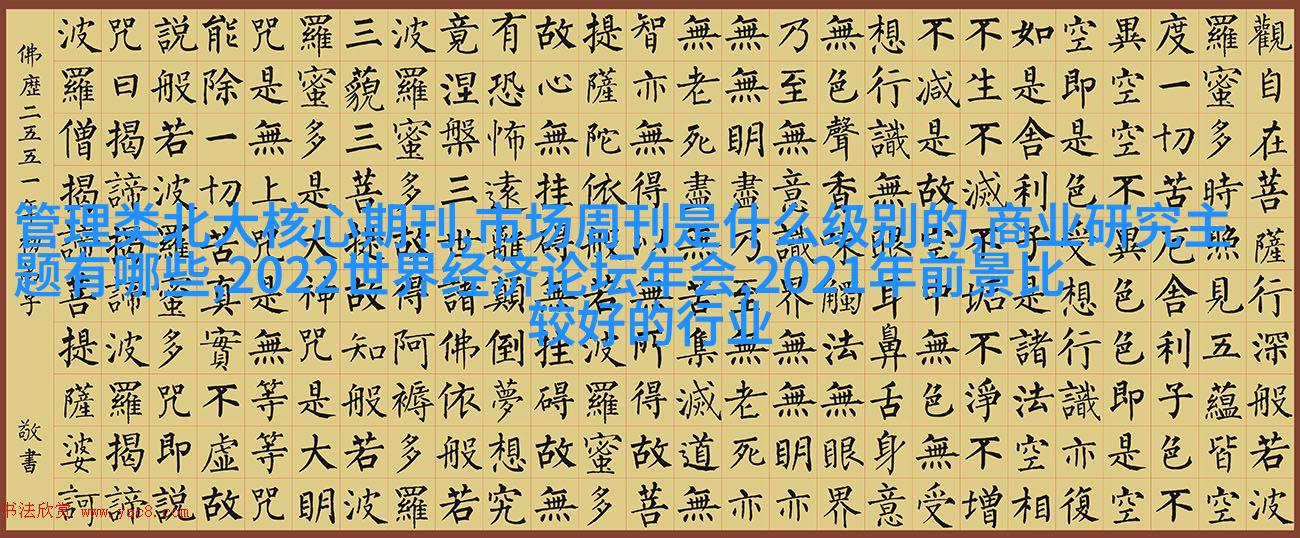 觀自在菩薩行深般若波
羅蜜多時照見五蘊皆空
度一切苦厄舍利子色不
異空空不異色色即是空
空即是色受想行識亦復
如是舍利子是諸法空相
不生不滅不垢不淨不增
不減是故空中無色無受
想行識無眼耳鼻舌身意
無色聲香味觸法無眼界
乃至無意識界無無明亦
無無明盡乃至無老死亦
無老死盡無苦集滅道無
智亦無得以無所得故菩
提薩陀依般若波羅蜜多
故心無挂碍無挂碍故無
有恐怖遠離顛倒夢想究
竟涅槃三世諸佛依般若
波羅蜜多故得阿褥多羅
三藐三菩提故知般若波
羅蜜多是大神咒是大明
咒是無上咒是無等等咒
能除一切苦真實不虛故
說般若波羅蜜多咒即說
咒曰揭諦揭諦波羅揭諦
波羅僧揭諦菩提薩婆訶
佛歷二五五一年
子
敬書
管理类北大核心期刊,市场周刊是什么级别的,商业研究主
题有哪些,2022世界经济论坛年会,2021年前景比
较好的行业
书法欣赏 www.yac8.com